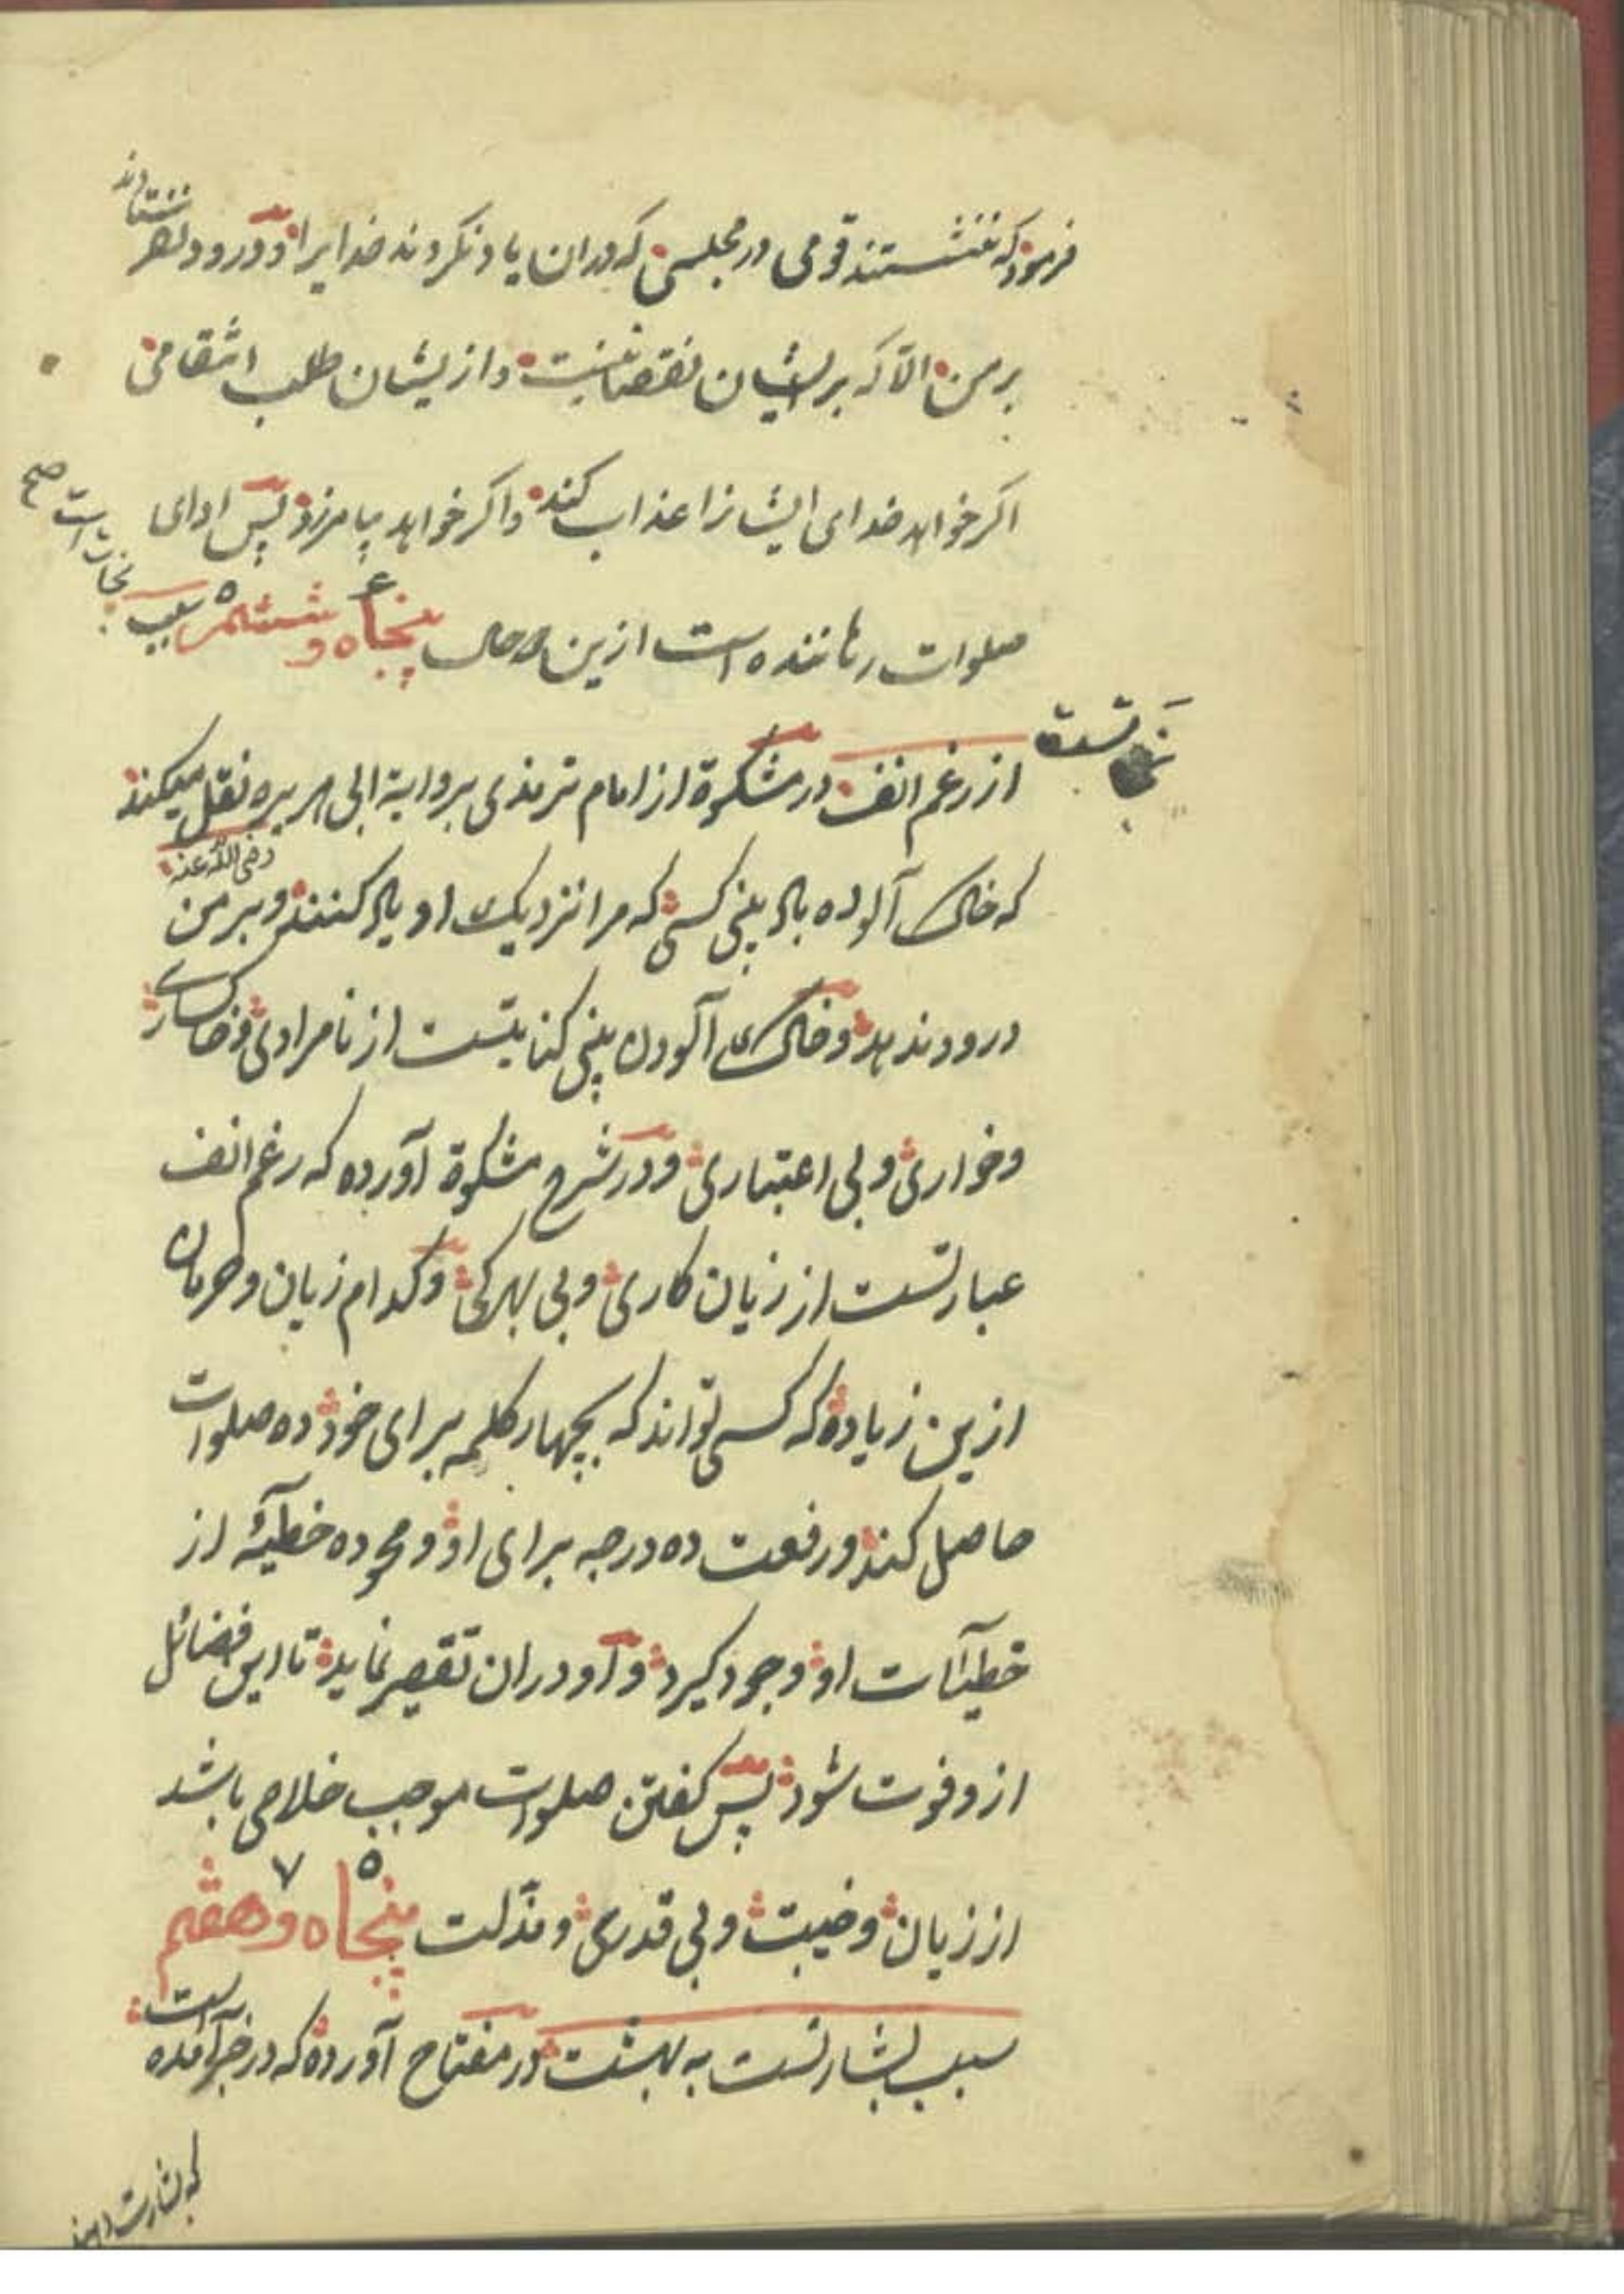 فرمود که ننشستند قومی در مجلسی که دران یاد نکردند خدایرا و درود نفرستادند
بر من الا که بر ایشان نقصانیست و از یشان طلب انتقامی
اکر خواهد خدای ایشانرا عذاب کند و اکر خواهد بیامرزد پس ادای
صلوات رهاننده است ازین پنجاه و ششم سبب
نجات است صح
نجاتست
از رغم انف در مشکوة از امام ترمذی بروایة ابی هریره نقل میکند
رضی الله عنه
که خاک آلوده باد بینی کسی که مرا نزدیک او یاد کنند و بر من
درود ندهد و خاک آلودن بینی کنایتست از نامرادی و خاکساری
و خواری و بی اعتباری و در شرح مشکوة آورده که رغم انف
عبارتست از زیان کاری و بی بهرکی و کدام زیان و حرمان
ازین زیاده که کسی تواند که بچهار کلمه برای خود ده صلوات
حاصل کند و رفعت ده درجه برای او و محو ده خطیئه از
خطیآت او وجود کیرد و او دران تقصیر نماید تا این فضائل
ازو فوت شود پس کفتن صلوات موجب خلاصی باشد
از زیان و خیبت و بی قدری و مذلت پنجاه و هفتم
۵ ۷
سبب بشارتست به بهشت در مفتاح آورده که در خبر آمده است
که بشارت دهند